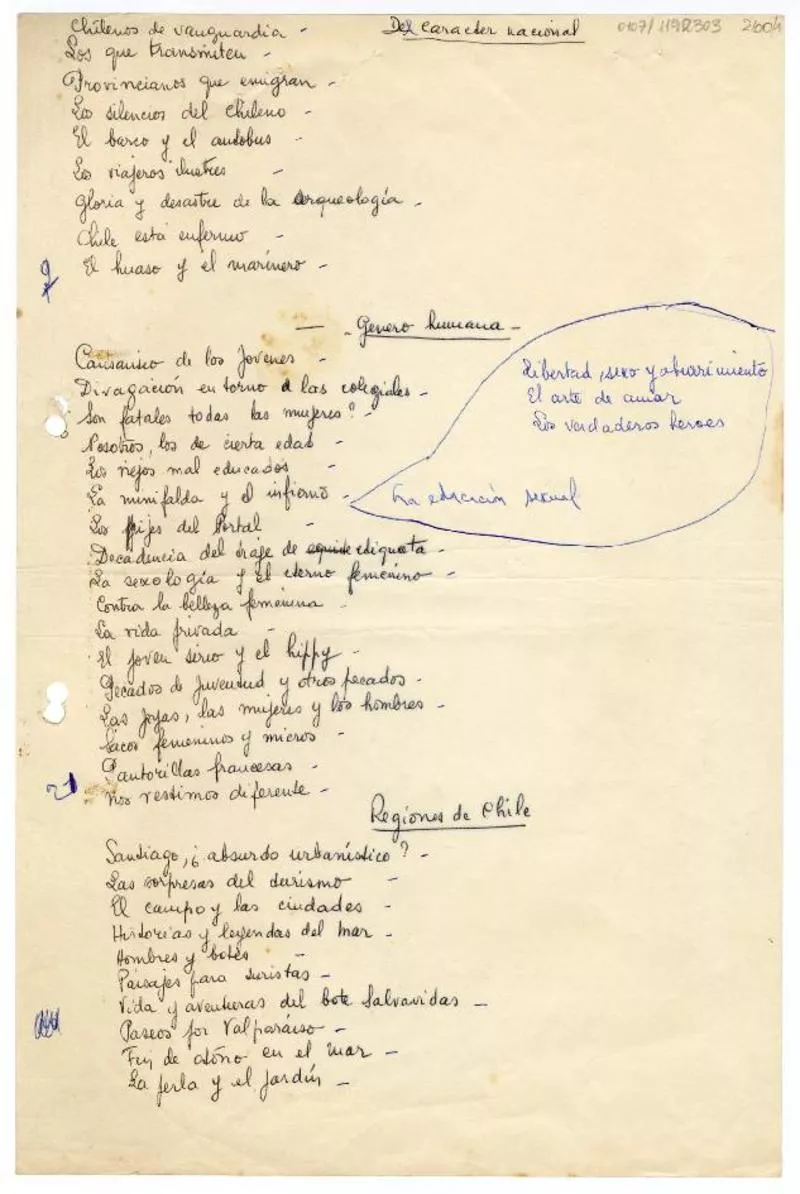 Del caracter nacional
0107/1192303 2604
Chilenos de vanguardia -
Los que transmiten -
Provincianos que emigran -
Los silencios del chileno -
El barco y el autobus -
Los viajeros ilustres -
Gloria y desastre de la arqueología -
Chile está enfermo -
El huaso y el marinero -
9
— - Genero humano -
Cansancio de los Jovenes -
Divagación en torno a las colegialas -
Son fatales todas las mujeres? -
Nosotros, los de cierta edad -
Los viejos mal educados -
La minifalda y el infierno -
Libertad, sexo y aburrimiento
El arte de amar
Los verdaderos heroes
La educación sexual
Los pijes del Portal -
Decadencia del traje de etiqueta -
La sexología y el eterno femenino -
Contra la belleza femenina -
La vida privada -
El joven serio y el hippy -
Pecados de Juventud y otros pecados -
Las Joyas, las mujeres y los hombres -
Sacos femeninos y micros -
Pantorillas francesas -
Nos vestimos diferente -
21
Regiones de Chile
Santiago, ¿ absurdo urbanístico? -
Las sorpresas del turismo -
El campo y las ciudades -
Historias y leyendas del mar -
Hombres y botes -
Paisajes para turistas -
Vida y aventuras del bote Salvavidas -
Paseos por Valparaíso -
Fin de otoño en el mar -
La perla y el jardín -